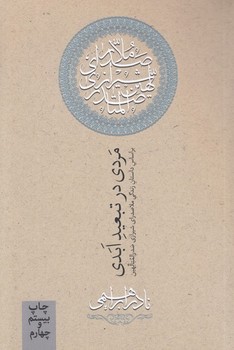 ملاصدرای
شیرازی
صدرالمتألهین
مردی در تبعید ابدی
براساس داستان زندگی ملاصدرای شیرازی صدرالمتألهین
نادر ابراهیمی
چاپ
بیستم
و
چهارم